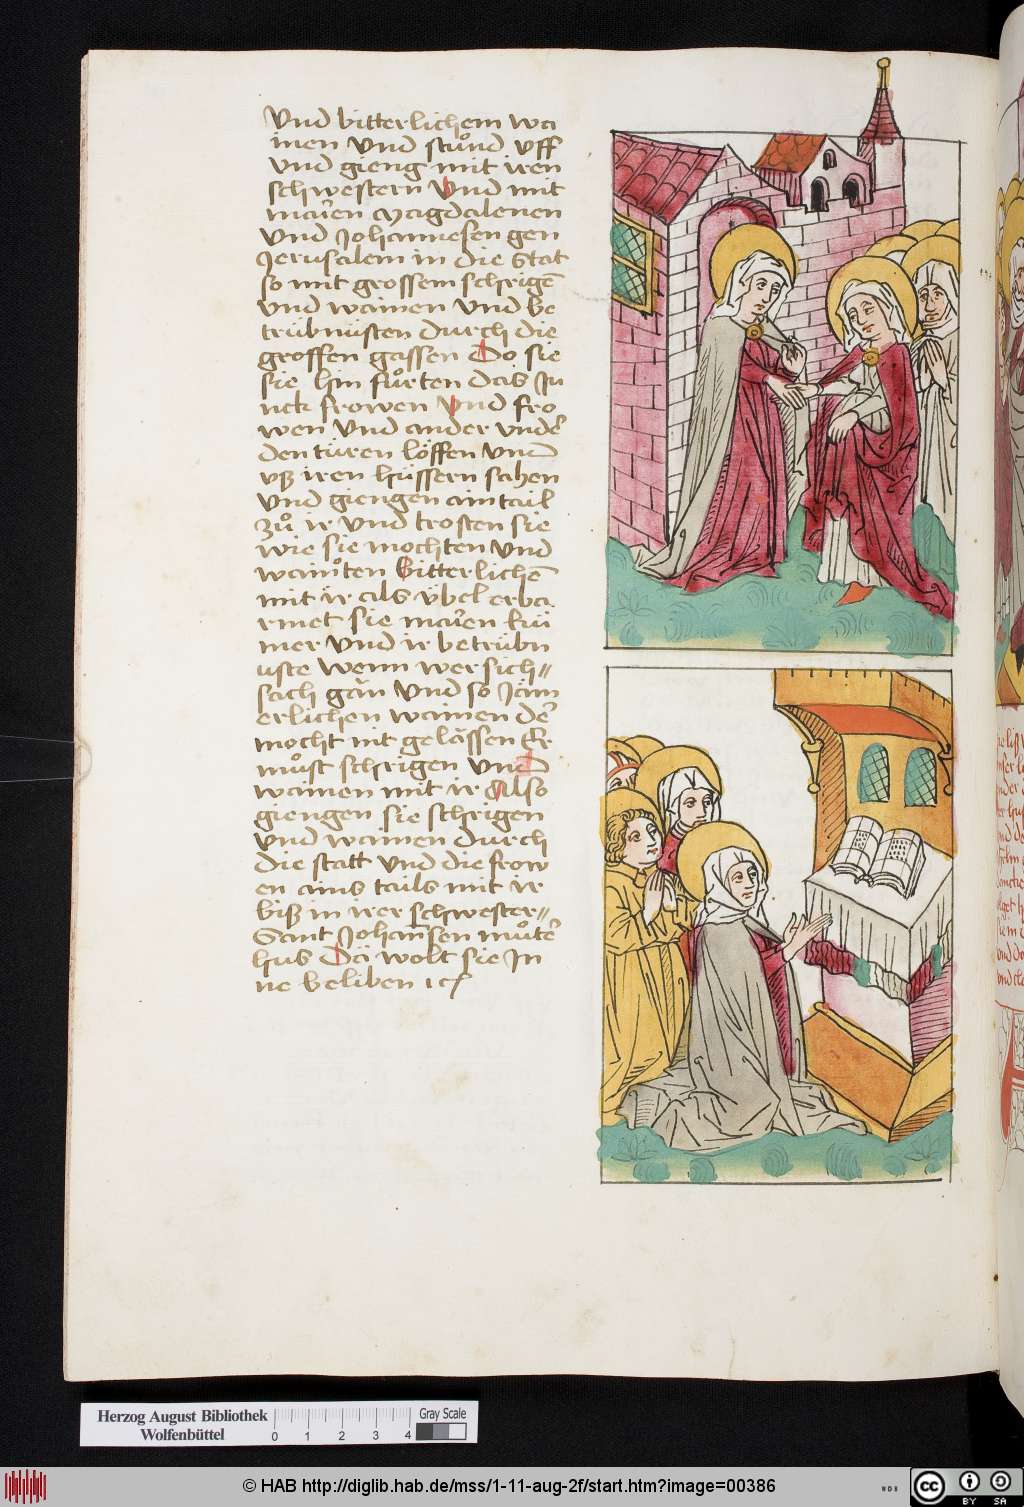 Vnd bitterlichem wa
inen Vnd stůnd vff
Vnd gieng mit iren
schwestern Vnd mit
marien Magdalenen
Vnd Johannesen gen
Jerusalem in die Stat
so mit grossem schrigē
Vnd wainen Vnd be
trübnüsten durch die
grossen gassen Do sie
sie hin fůrten das Ju
nck frowen Vnd fro
wen Vnd ander vnder
den türen löffen Vnd
vß iren hüssern sahen
Vnd giengen aintail
zů ir Vnd trosten sie
wie sie mochten Vnd
wainten bitterlichē
mit ir als übel erba
rmet sie marien kü
mer Vnd ir betrübn
uste wenn wer sich
sach gän Vnd so Jäm
erlichen wainen der
mocht nit gelässen Er
můst schrigen Vnd
wainen mit ir Also
giengen sie schrigen
Vnd wainen durch
die statt Vnd die frow
en ains tails mit ir
biß in irer schwester
Sant Johannsen můter
hus Dä wolt sie In
ne beliben
Herzog August Bibliothek
Wolfenbüttel
0 1 2 3 4
Gray Scale
© HAB http://diglib.hab.de/mss/1-11-aug-2f/start.htm?image=00386
WDB
cc BY SA